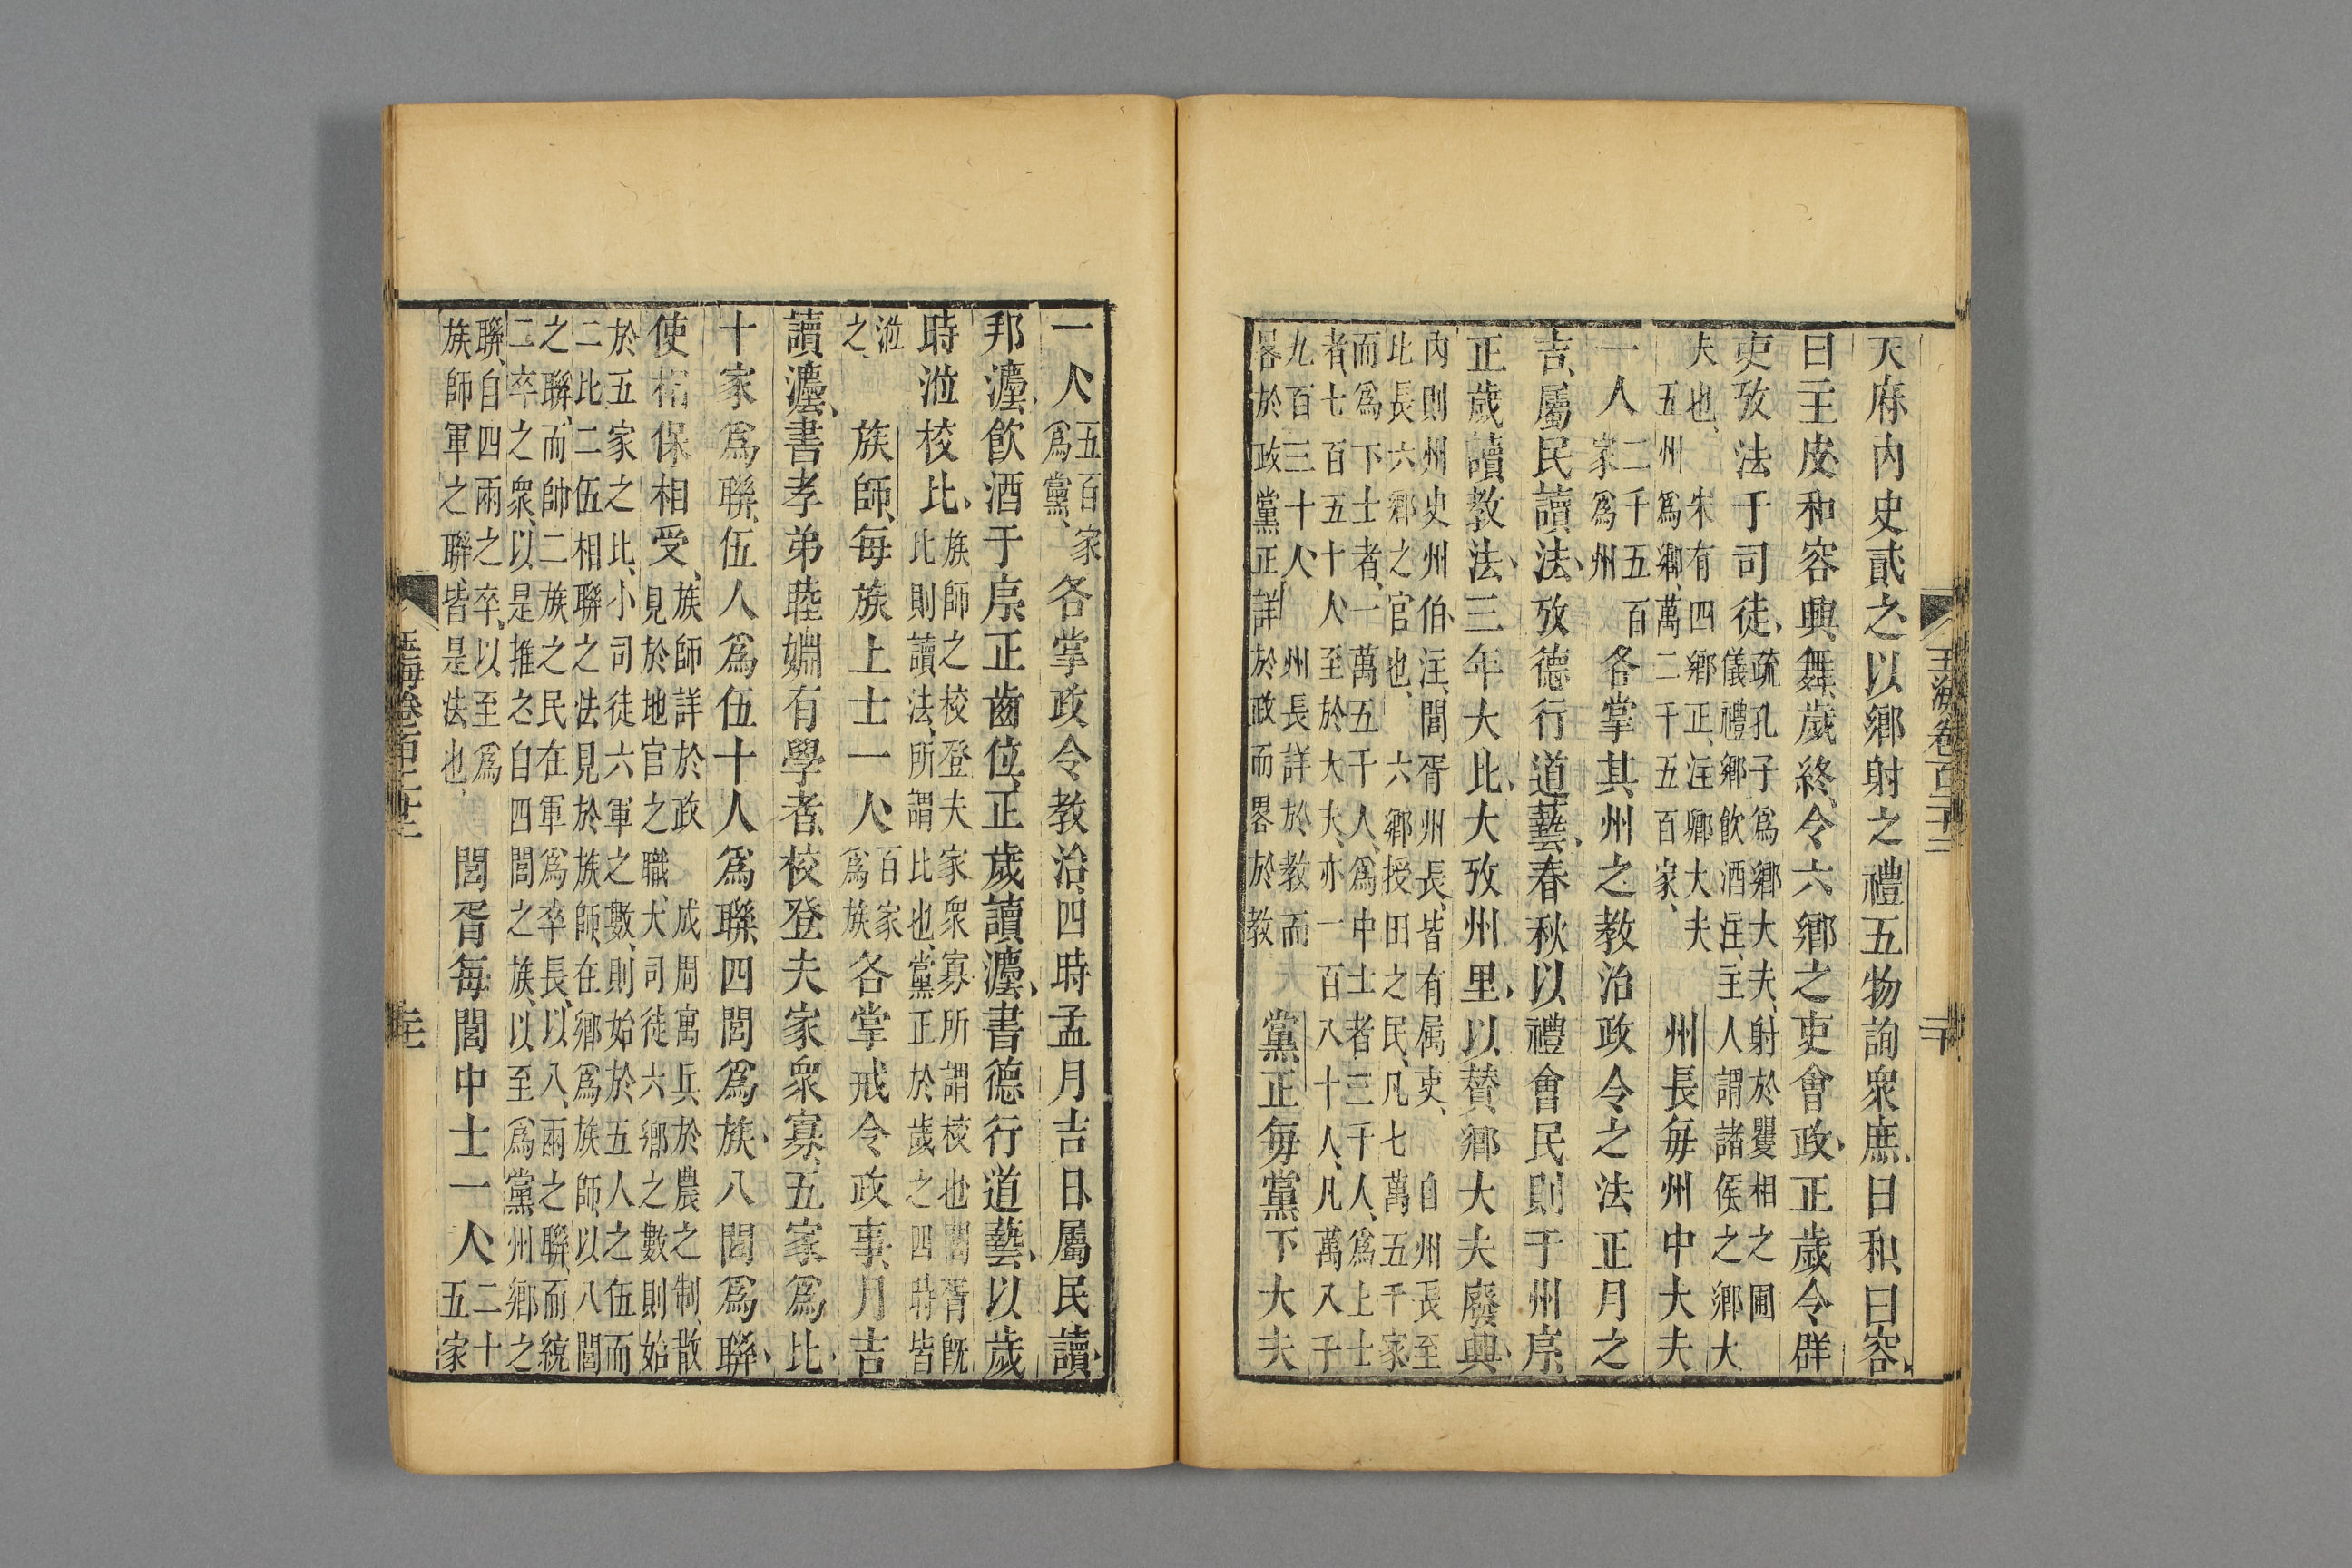 天府内史貳之以鄉射之禮五物詢衆庶曰和曰容
曰主皮和容興舞歲終令六鄉之吏會政正歲令群
吏攷法于司徒疏孔子爲鄉大夫射於矍相之圃
儀禮鄉飲酒注主人謂諸侯之鄉大
夫也朱有四鄉正注鄉大夫
五州爲鄉萬二千五百家州長每州中大夫
一人二千五百
家爲州各掌其州之教治政令之法正月之
吉屬民讀法攷德行道藝春秋以禮會民則于州序
正歲讀教法三年大比大攷州里以賛鄉大夫廢興
内則州史州伯注閭胥州長皆有屬吏自州長至
比長六鄉之官也六鄉授田之民凡七萬五千家
而爲下士者一萬五千人爲中士者三千人爲上士
者七百五十人至於大夫亦一百八十人凡萬八千
九百三十人州長詳於教而
畧於政黨正詳於政而畧於教黨正每黨下大夫
王海卷百二十二
二十
一人五百家
爲黨各掌政令教治四時孟月吉日屬民讀
邦灋飲酒于序正齒位正歲讀灋書德行道藝以歲
時涖校比族師之校登夫家衆寡所謂校也閭胥旣
比則讀法所謂比也黨正於歲之四時皆
涖
之族師每族上士一人百家
爲族各掌戒令政事月吉
讀灋書孝弟睦婣有學者校登夫家衆寡五家爲比
十家爲聯伍人爲伍十人爲聯四閭爲族八閭爲聯
使相保相受族師詳於政成周寓兵於農之制散
見於地官之職大司徒六鄉之數則始
於五家之比小司徒六軍之數則始於五人之伍而
二比二伍相聯之法見於族師在鄉爲族師以八閭
之聯而帥二族之民在軍爲卒長以八兩之聯而統
二卒之衆以是推之自四閭之族以至爲黨州鄉之
聯自四兩之卒以至爲
族師軍之聯皆是法也閭胥每閭中士一人二十
五家